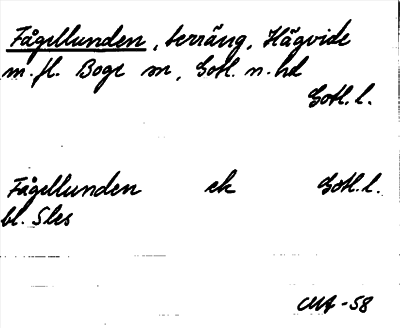 Fågellunden, terräng, Hägvide
m. fl. Boge sn, Gotl. n. hd
Gotl. l.
Fågellunden ek Gotl. l.
bl. 5 Les
CMA -58